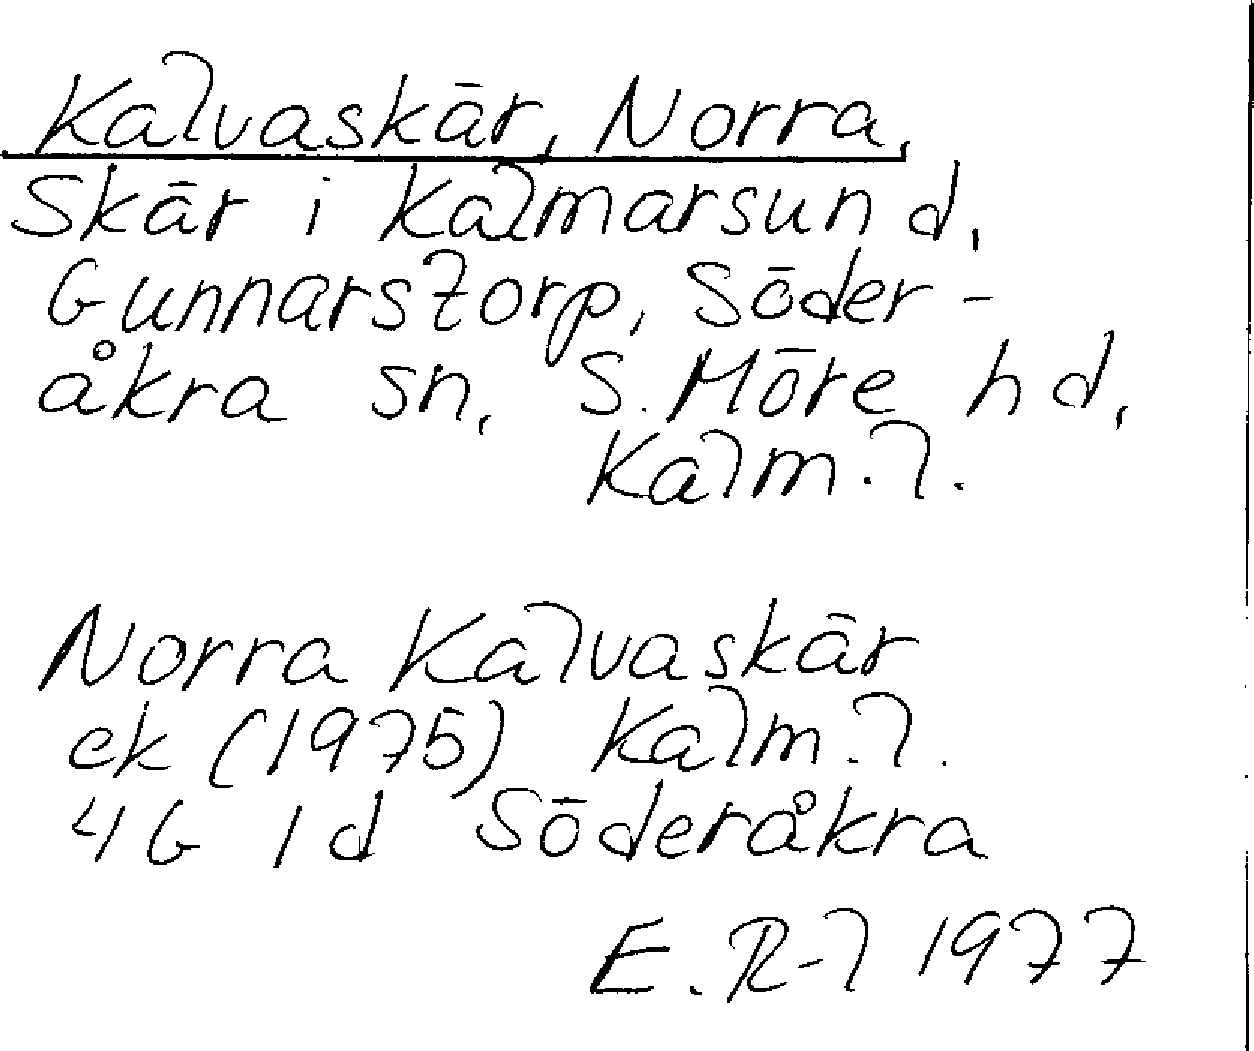 Kalvaskär, Norra,
Skär i Kalmarsund,
Gunnarstorp, Söder-
åkra sn, S. Möre hd,
Kalm. l.
Norra Kalvaskär
ek (1975) Kalm. l.
4G 1d Söderåkra
E. R-l 1977